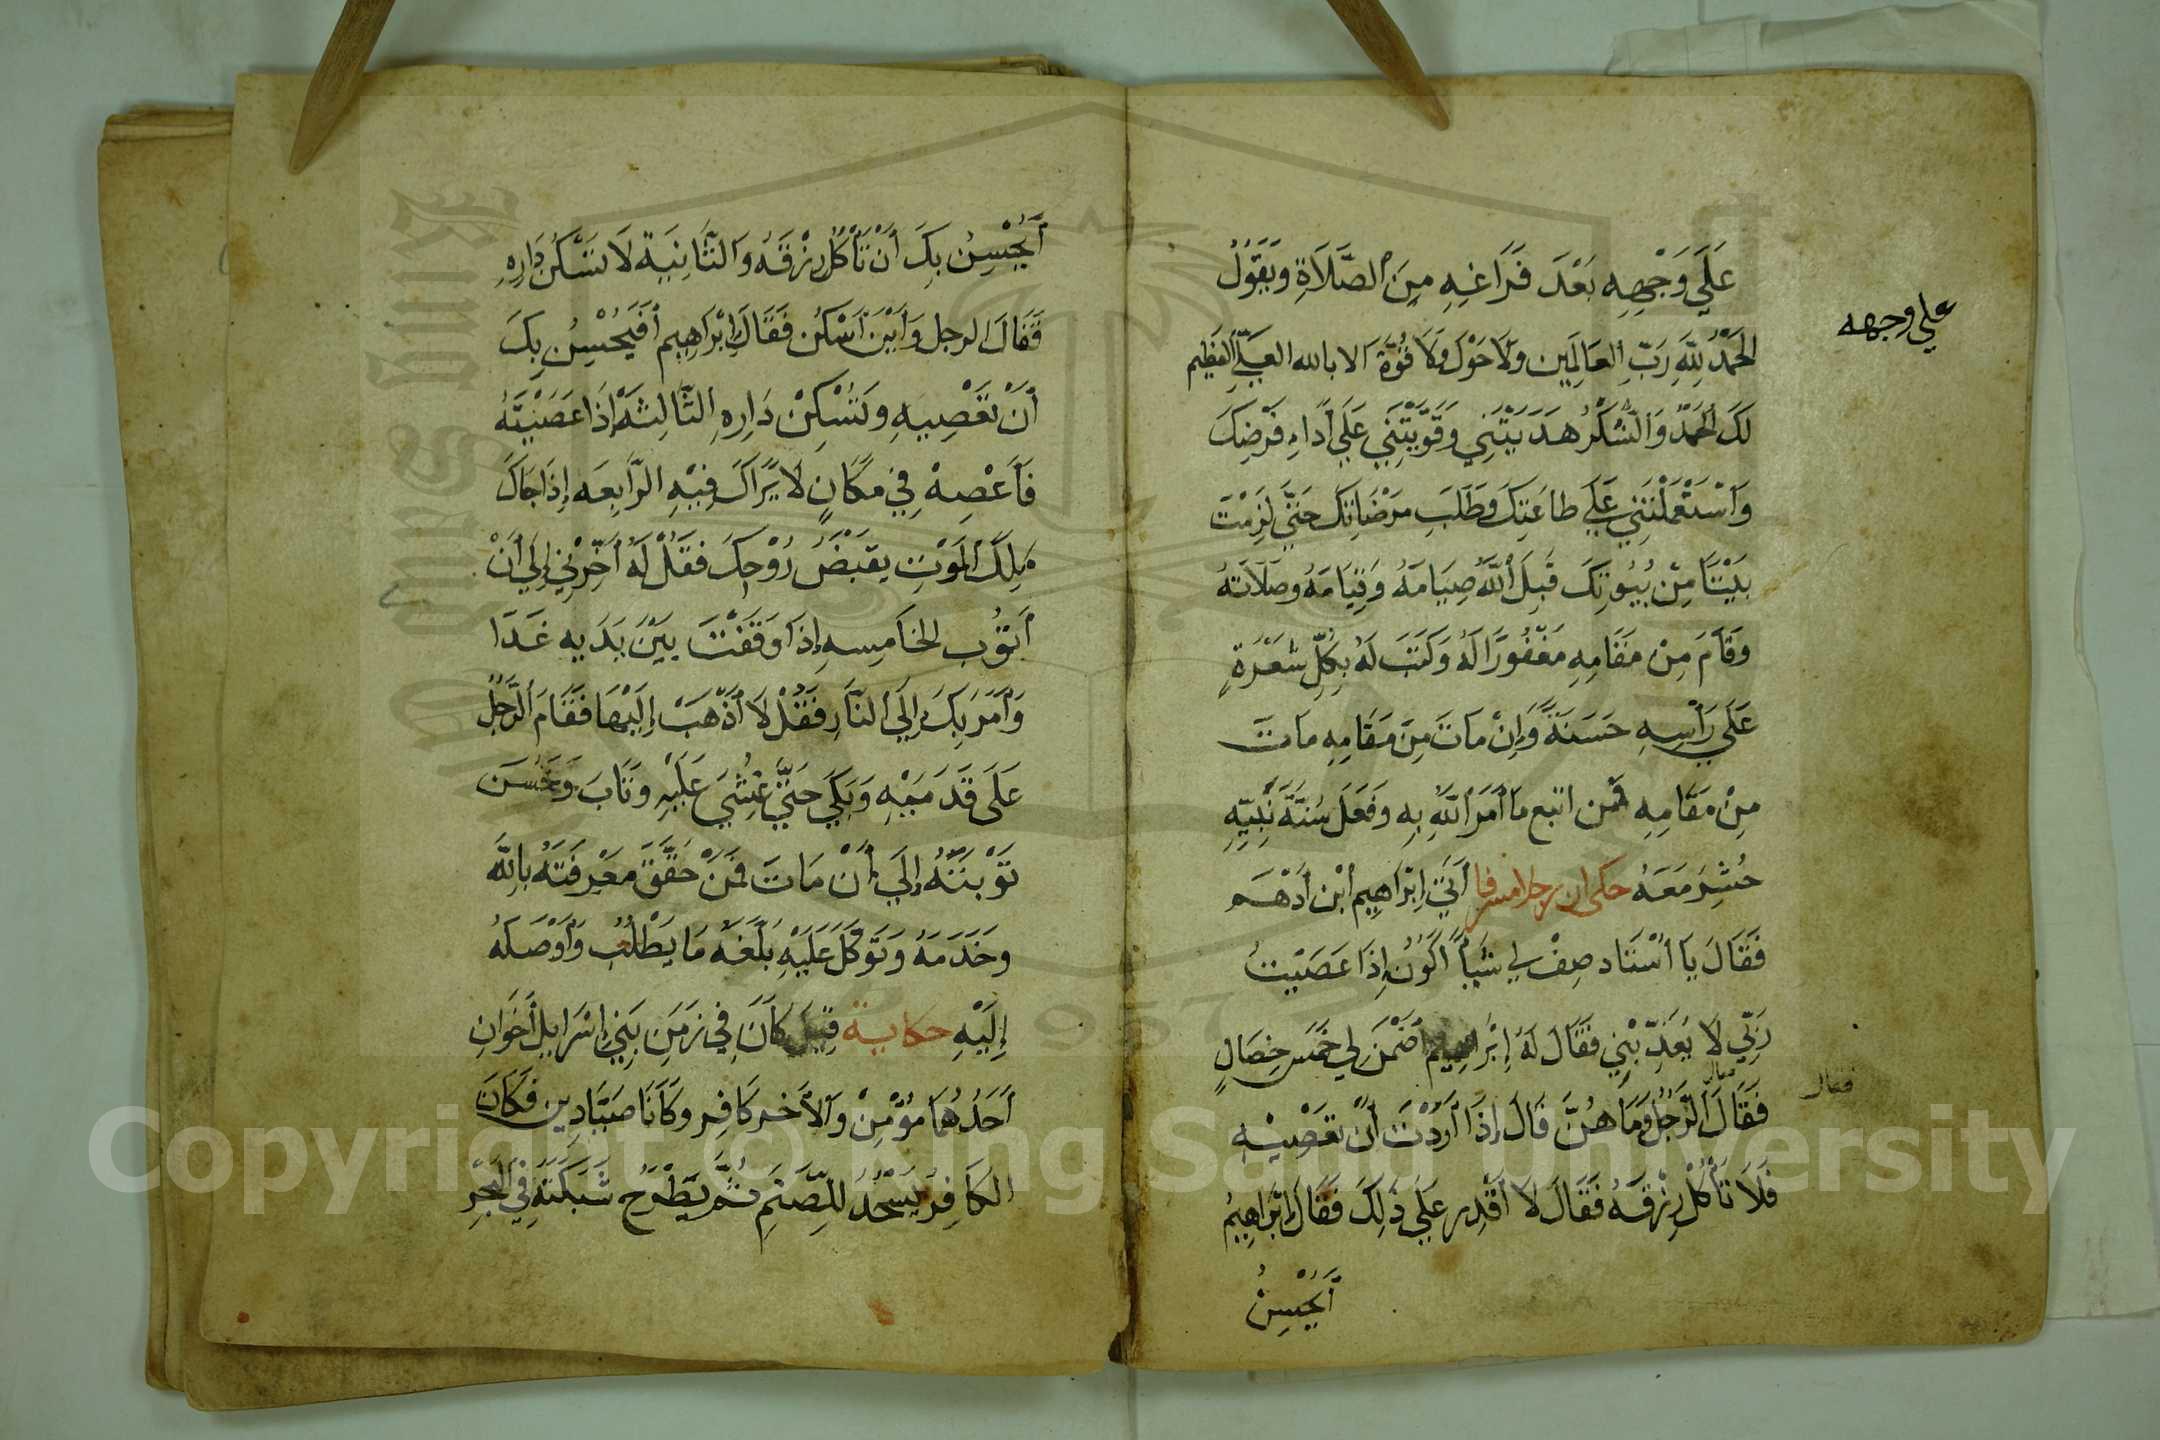 عَلَي وَجْهِهِ بَعْدَ فَرَاغِهِ مِنَ الصَّلَاةِ وَيَقُولُ
علي وجهه
الحَمْدُ لِلَّهِ رَبِّ العَالَمِين ولَا حَوْلَ وَلَا قُوَّةَ الا بالله العَلِيِّ العَظِيم
لَكَ الحَمْدُ وَالشُّكْرُ هَدَيْتَنِي وَقَوَّيْتَنِي عَلَي اَدَاءِ فَرْضِكَ
وَاسْتَعْمَلْتَنِي عَلَي طاعَتِكَ وَطَلَبِ مَرْضَاتِكَ حَتَّي لَزِمْتُ
بَيْتًا مِنْ بُيُوتِكَ قَبِلَ اللَّهُ صِيَامَهُ وَقِيَامَهُ وصَلَاتَهُ
وَقَامَ مِنْ مَقَامِهِ مَغْفُورًا لَهُ وَكَتَبَ لَهُ بِكُلِّ شَعْرَةٍ
عَلَي رَأْسِهِ حَسَنَةً وَإِنْ مَاتَ مِنَ مَقَامِهِ مَاتَ
مِنْ مَقَامِهِ فَمن اتبع ما أَمَرَ اللَّهُ بِهِ وَفَعَلَ سُنَّةَ نَبِيِّهِ
حُشِرَ مَعَهُ حكى ان رجلا مسرفا أَتَي إِبْرَاهِيم ابْن اَدْهَم
فَقَالَ يَا اُسْتَاد صِفْ لِي شَيأً اَكُونُ إِذَا عَصَيْتُ
رَبِّي لَا يُعَذِّبْنِي فَقَالَ لَهُ إِبْرَاهِيم اضْمَنْ لِي خَمْسَ خِصَالٍ
فقال
فَقَالَ الرَّجُلُ وَمَا هُنَّ قَالَ إِذَا اَرَدْتَ أَنْ تَعْصِيْهِ
فَلَا تَأْكُلْ رِزْقَهُ فَقَالَ لَا أَقْدِر عَلَي ذَلِكَ فَقَالَ إِبْرَاهِيمُ
أَيُحْسِنُ
أَيُحْسِنُ بِكَ أَنْ تَأْكُلَ رِزْقَهُ وَالثَّانِيَةَ لَا تَسْكُنْ دَارِهِ
فَقَالَ الرجل وَأَيْنَ أَسْكُن فَقَالَ إِبْرَاهِيم أَفَيُحْسِنُ بِكَ
أَنْ تَعْصِيهِ وتَسْكُنْ دَارِهِ الثَّالِثَه إِذَا عَصَيْتَهُ
فَاَعْصِهْ فِي مَكَانٍ لَا يَرَاكَ فِيْهِ الرَّابِعَه إِذَا جَاكَ
مَلَكُ المَوْتِ يَقْبَضَ رُوْحِكَ فَقُلْ لَهُ أَخِّرْنِي إِلَي أَنْ
أَتُوب الخَامِسه إِذَا وَقَفْتَ بَيْنَ يَدَيهِ غَدَا
وَأَمَرَ بِكَ إِلَي النَّارِ فَقُلْ لَا أَذْهَبَ إِلَيْهَا فَقَامَ الرَّجُلُ
عَلَى قَدَمَيْهِ وَبَكَي حَتَّي غُشِيَ عَلَيْهِ وَتَابَ وَحَسُنَ
تَوْبَتَهُ إِلَي اَنْ مَاتَ فَمَنْ حَقَّقَ مَعْرِفَتَهُ بِاللَّهَ
وَخَدَمَهُ وَتَوَكَّلَ عَلَيْهِ بَلَّغَهُ مَا يَطْلُبُ وَأَوْصَلَهُ
إِلَيْهِ حكاية قِيلَ كَانَ فِي زَمَنِ بَنِي إِسْرَايِلَ أَخَوَانِ
اَحَدُهُمَا مُؤْمِنْ وَالأَخر كَافِر وَكَانَا صَيَّادِين فَكَانَ
الكَافِرُ يَسْجُدُ لِلصَّنَمِ ثُمَّ يَطْرَحُ شَبَكَتَهُ فِي البَحْرِ
Copyright © King Saud University